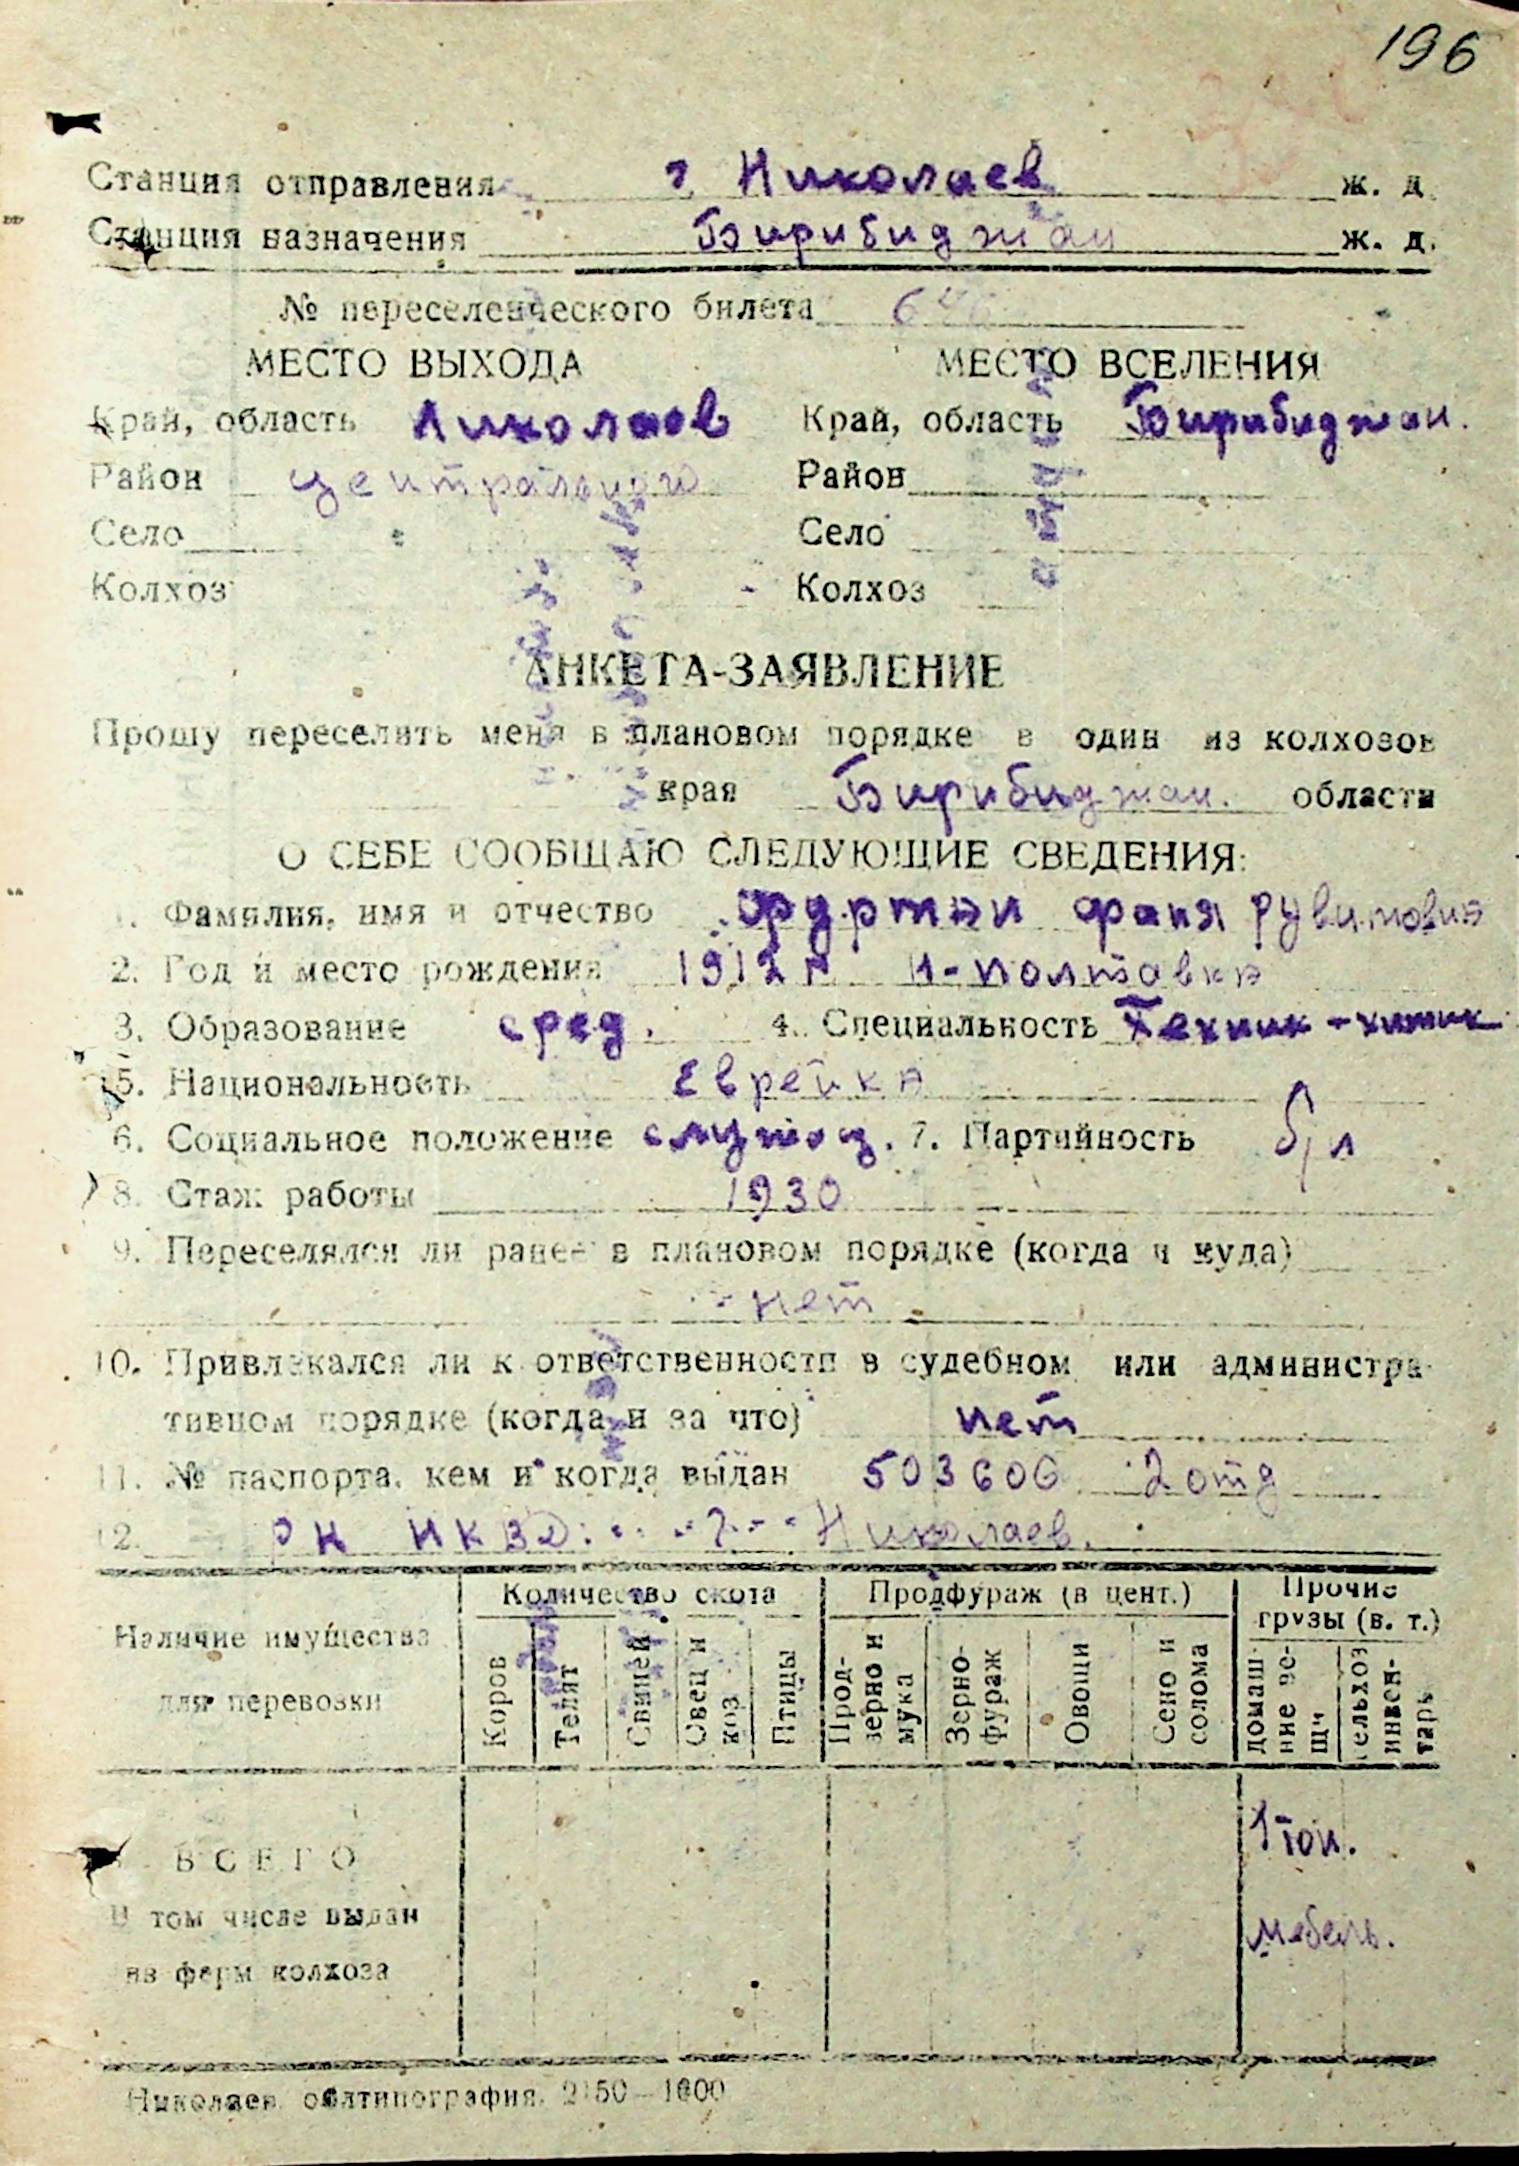 196
Станция отправления г Николаев ж. д.
Станция назначения Бирибиджан ж. д.
№ переселенческого билета
МЕСТО ВЫХОДА МЕСТО ВСЕЛЕНИЯ
Край, область Николаев Край, область Бирибиджан.
Район центрального Район
Село Село
Колхоз Колхоз
АНКЕТА-ЗАЯВЛЕНИЕ
Прошу переселить меня в плановом порядке в один из колхозов
края Бирибиджан. области
О СЕБЕ СООБЩАЮ СЛЕДУЮЩИЕ СВЕДЕНИЯ:
1. Фамилия, имя и отчество Фаня Рувимовна
2. Год и место рождения 1912 г Н-Полтавка
3. Образование сред. 4. Специальность Техник-химик
5. Национальность Еврейка
6. Социальное положение служащ. 7. Партийность б/п
8. Стаж работы 1930
9. Переселялся ли ранее в плановом порядке (когда и куда)
нет
10. Привлекался ли к ответственности в судебном или администра-
тивном порядке (когда и за что) нет
11. № паспорта, кем и когда выдан 503606 2 отд
12. РК НКВД Николаев.
Количество скота Продфураж (в цент.) Прочие грузы (в. т.)
Наличие имущества для перевозки
Коров Телят Свиней Овец и коз Птицы Прод-зерно и мука Зерно-фураж Овощи Сено и солома домаш-ние ве-щи сельхоз инвен-тарь
ВСЕГО 1 тон.
В том числе выдан мебель.
из ферм колхоза
Николаев, облтипография. 2150—1000